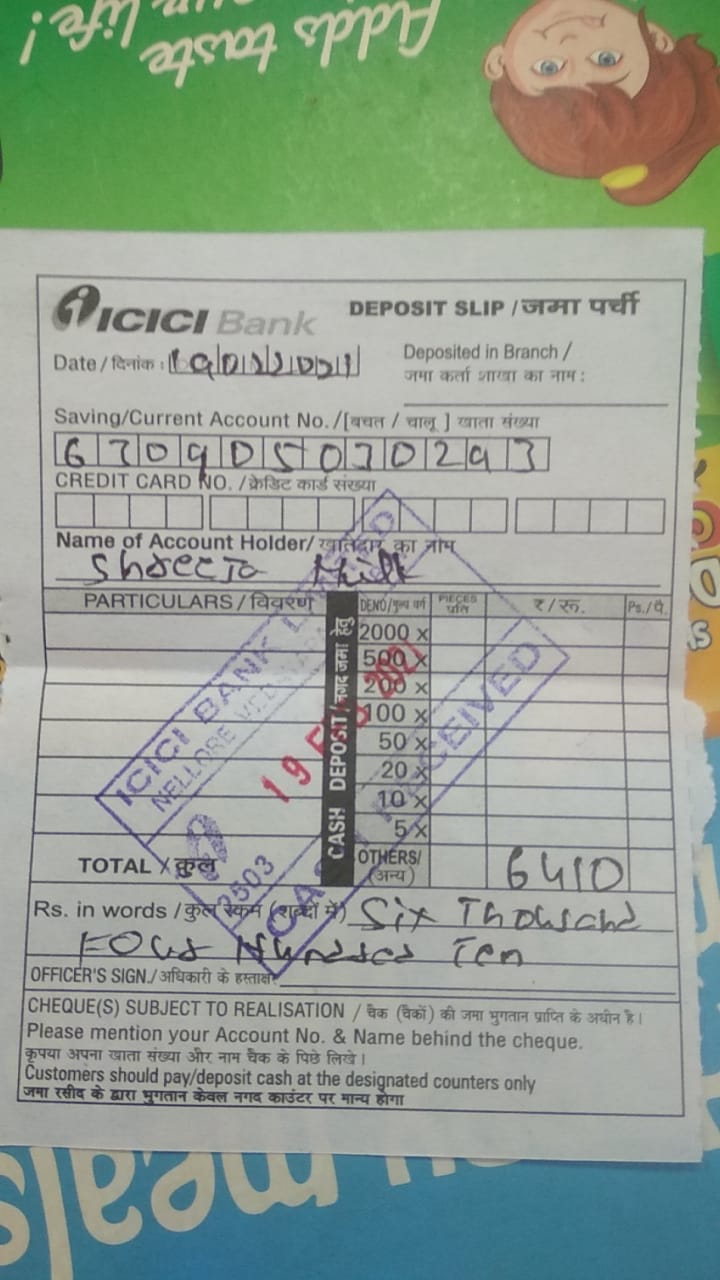 Adds taste
your life!
ICICI Bank
DEPOSIT SLIP / जमा पर्ची
Date / दिनांक : 19022021
Deposited in Branch /
जमा कर्ता शाखा का नाम :
Saving/Current Account No. /[बचत / चालू ] खाता संख्या
CREDIT CARD NO. /क्रेडिट कार्ड संख्या
Name of Account Holder/ खातेदार का नाम
Shreeja Milk
PARTICULARS / विवरण
CASH DEPOSIT/नगद जमा हेतु
DENO/मुल्य वर्ग
PIECES
प्रति
₹ / रू.
Ps./पै.
2000 x
500 x
200 x
100 x
50 x
20 x
10 x
5 x
TOTAL / कुल
OTHERS/
(अन्य)
6410
ICICI BANK LIMITED
NELLORE
19 FEB 2021
3503
CASH RECEIVED
Rs. in words / कुल रकम (शब्दों में) Six Thousand
Four Hundred Ten
OFFICER'S SIGN./ अधिकारी के हस्ताक्षर
CHEQUE(S) SUBJECT TO REALISATION / चैक (चैकों) की जमा भुगतान प्राप्ति के अधीन है।
Please mention your Account No. & Name behind the cheque.
कृपया अपना खाता संख्या और नाम चैक के पिछे लिखे।
Customers should pay/deposit cash at the designated counters only
जमा रसीद के द्वारा भुगतान केवल नगद काउंटर पर मान्य होगा
meals